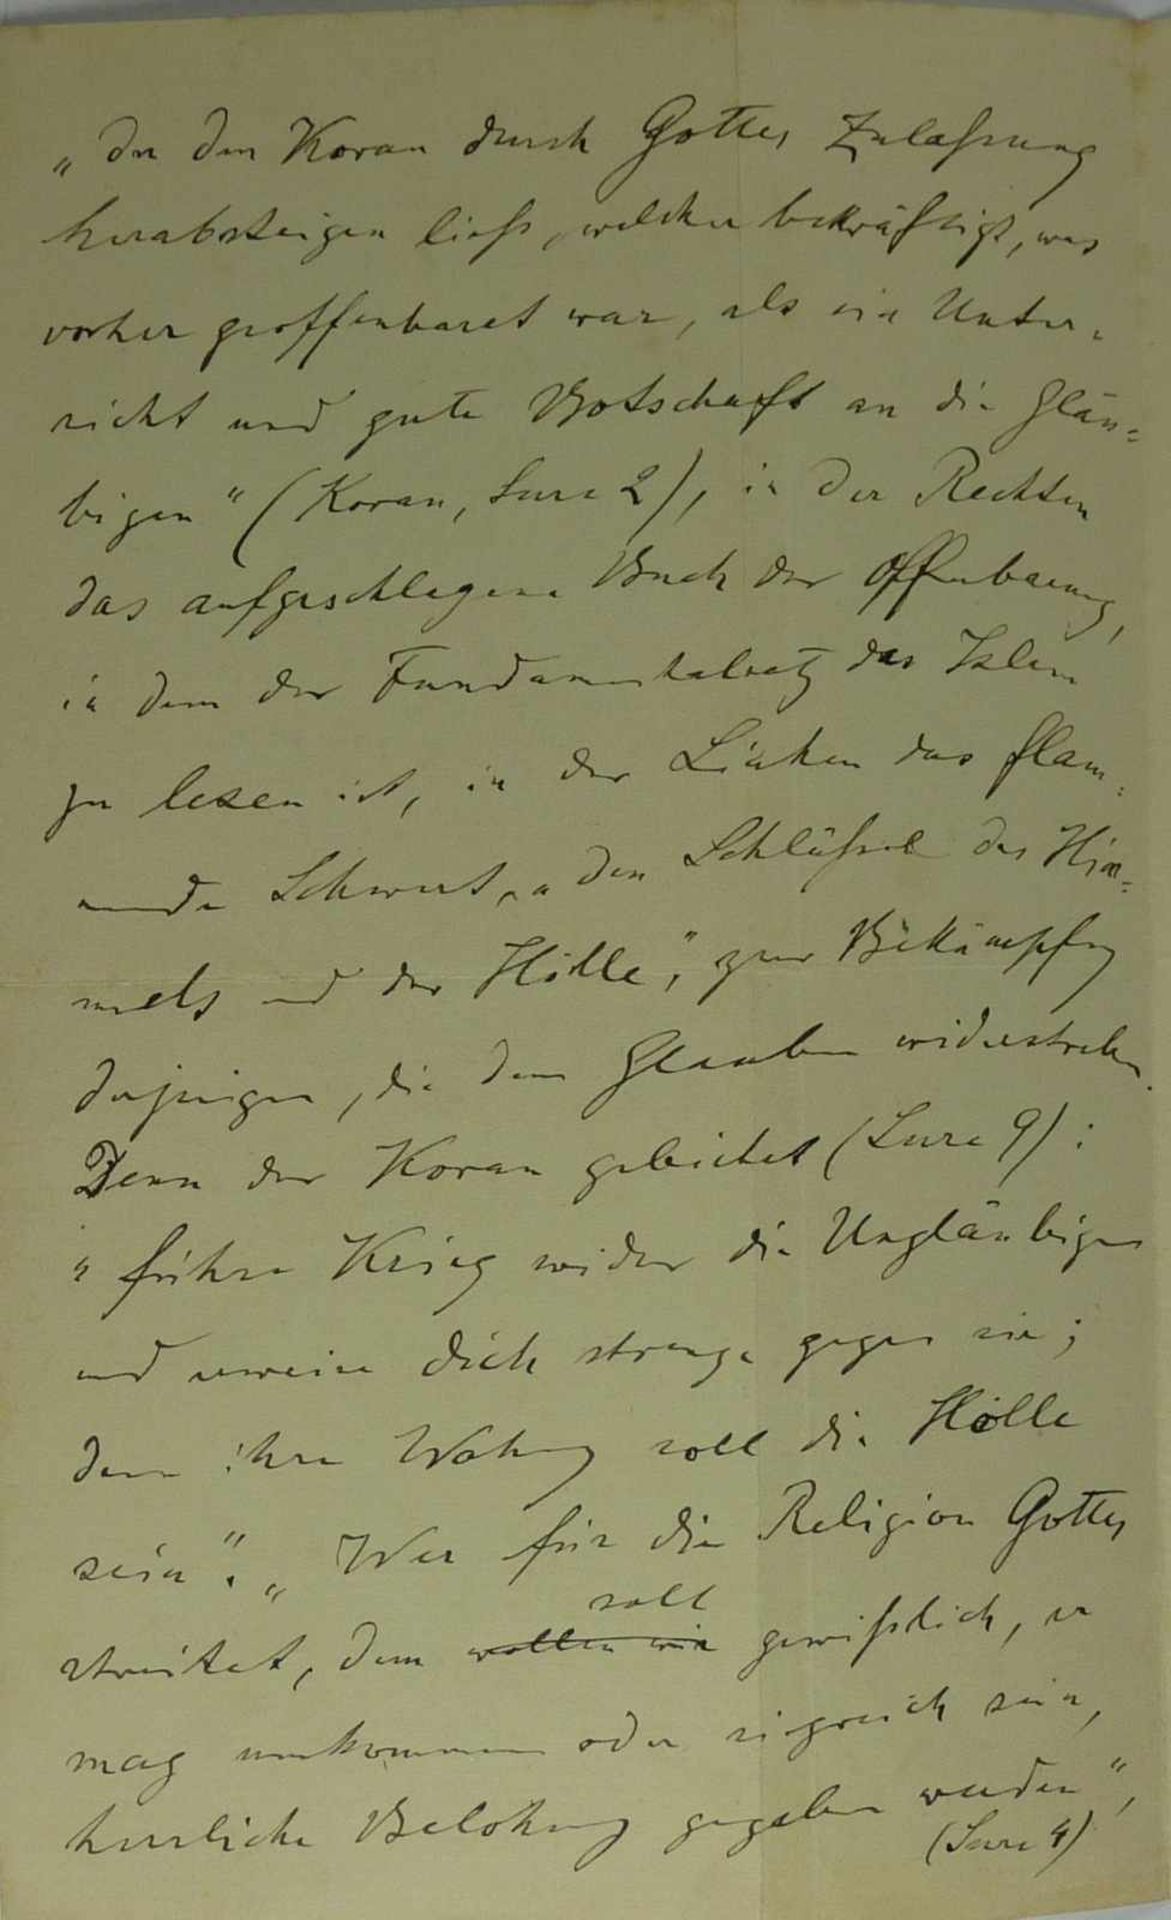 „der den Koran durch Gottes Zulaßung
herabsteigen ließ, welcher bekräftigt, was
vorher geoffenbaret war, als ein Unter-
richt und gute Botschaft an die Gläu=
bigen“ (Koran, Sure 2), in der Rechten
das aufgeschlagene Buch der Offenbarung,
in dem der Fundamentalsatz des Islam
zu lesen ist, in der Linken das flam=
mende Schwert, „den Schlüßel des Him=
mels und der Hölle,“ zur Bekämpfung
derjenigen, die dem Glauben widerstreben.
Denn der Koran gebietet (Sure 9):
„führe Krieg wider die Ungläubigen
und erweise dich strenge gegen sie;
denn ihre Wohnung soll die Hölle
sein“. „Wer für die Religion Gottes
soll
streitet, dem wollen wir gewißlich, er
mag umkommen oder siegreich sein,
herrliche Belohnung gegeben werden“,
(Sure 4)